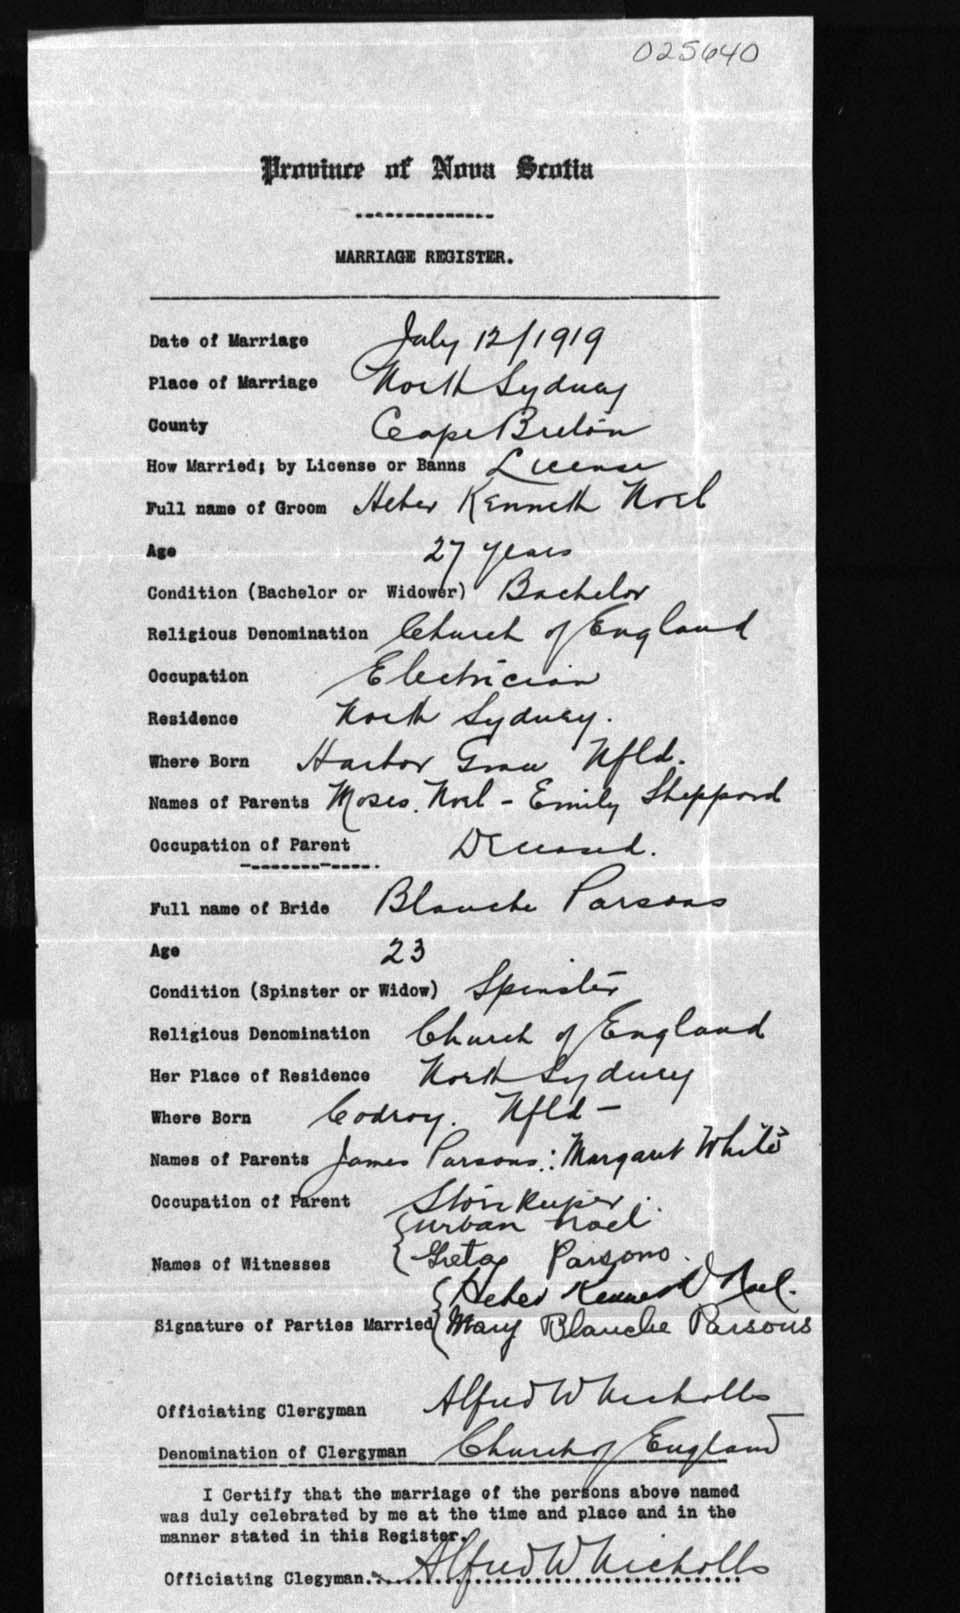 025640
Province of Nova Scotia
MARRIAGE REGISTER.
Date of Marriage July 12/1919
Place of Marriage North Sydney
County Cape Breton
How Married; by License or Banns License
Full name of Groom Heber Kenneth Noel
Age 27 years
Condition (Bachelor or Widower) Bachelor
Religious Denomination Church of England
Occupation Electrician
Residence North Sydney.
Where Born Harbor Grace Nfld.
Names of Parents Moses. Noel - Emily Sheppard
Occupation of Parent Deceased.
Full name of Bride Blanche Parsons
Age 23
Condition (Spinster or Widow) Spinster
Religious Denomination Church of England
Her Place of Residence North Sydney
Where Born Codroy. Nfld -
Names of Parents James Parsons: Margaret White
Occupation of Parent Storekeeper.
Urban Noel
Names of Witnesses Greta Parsons.
Heber Kenneth Noel.
Signature of Parties Married Mary Blanche Parsons
Officiating Clergyman Alfred W Nicholls
Denomination of Clergyman Church of England
I Certify that the marriage of the persons above named
was duly celebrated by me at the time and place and in the
manner stated in this Register.
Officiating Clegyman Alfred W Nicholls